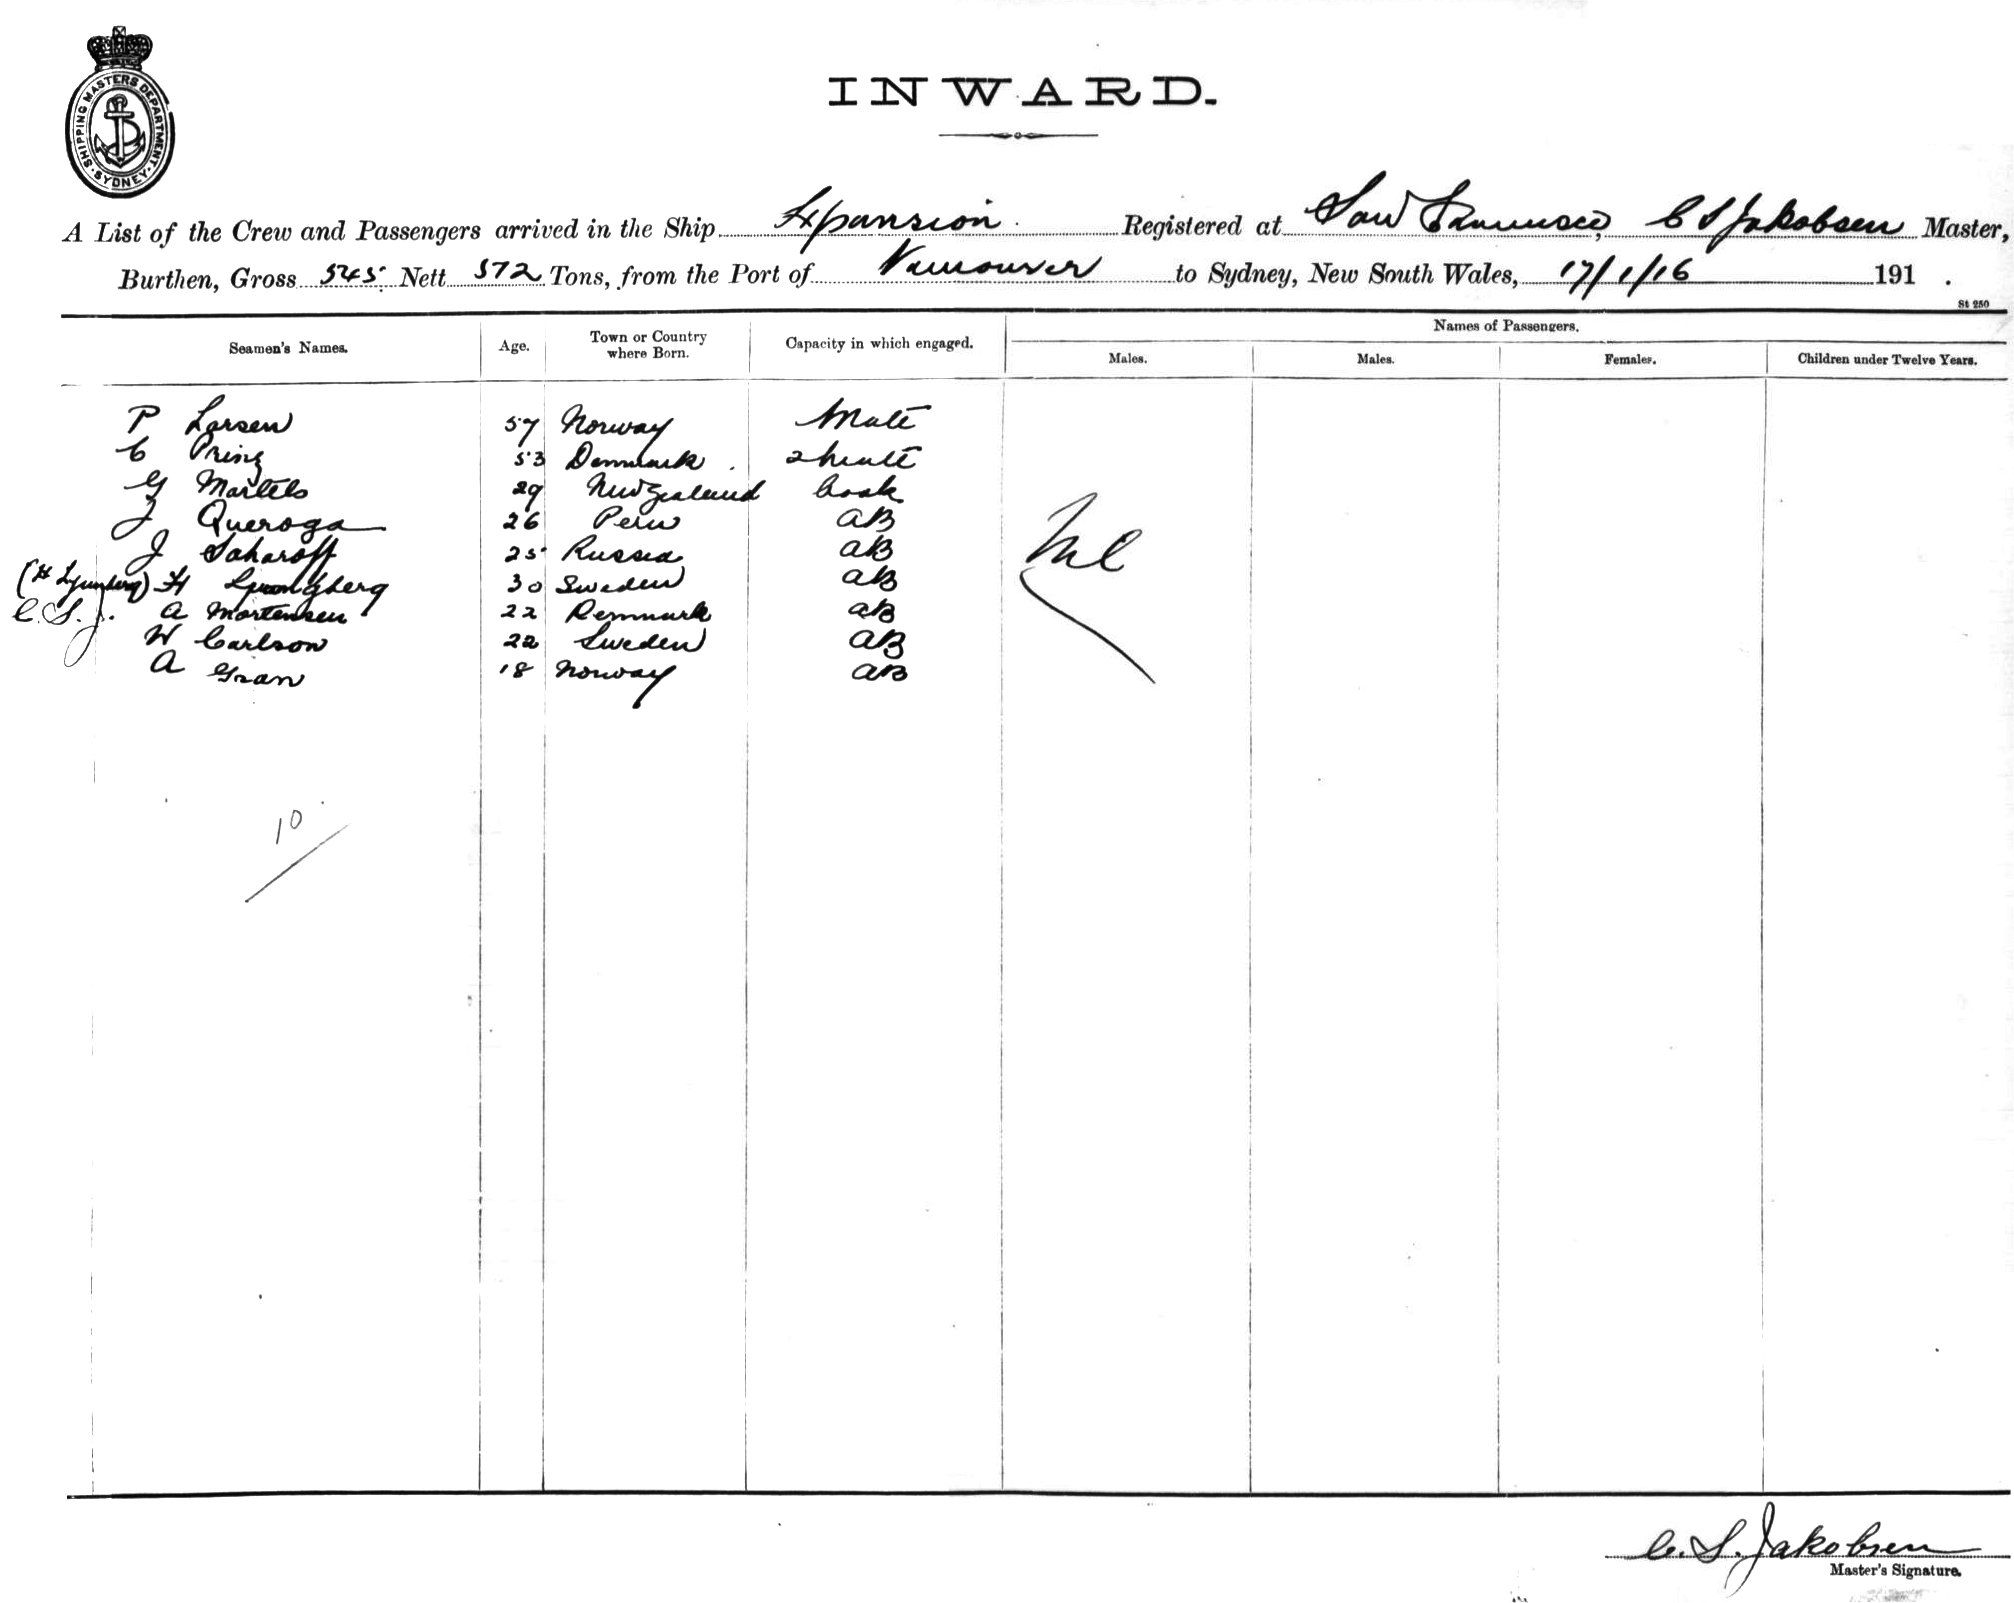 SHIPPING MASTERS DEPARTMENT SYDNEY
INWARD.
A List of the Crew and Passengers arrived in the Ship Expansion Registered at San Francisco, C S Jakobsen Master,
Burthen, Gross 545 Nett 572 Tons, from the Port of Vancouver to Sydney, New South Wales, 17/1/16 191 .
St 250
Seamen's Names. Age. Town or Country where Born. Capacity in which engaged. Names of Passengers.
Males. Males. Females. Children under Twelve Years.
P Larsen 57 Norway Mate
C Prinz 53 Denmark 2 Mate
G Martels 29 New Zealand Cook
J Queroga 26 Peru AB
J Saharoff 25 Russia AB
(H Ljungberg) H Ljungberg 30 Sweden AB
C. S. J. A Mortensen 22 Denmark AB
W Carlson 22 Sweden AB
A Gran 18 Norway AB
Nil
10
C. S. Jakobsen
Master's Signature.